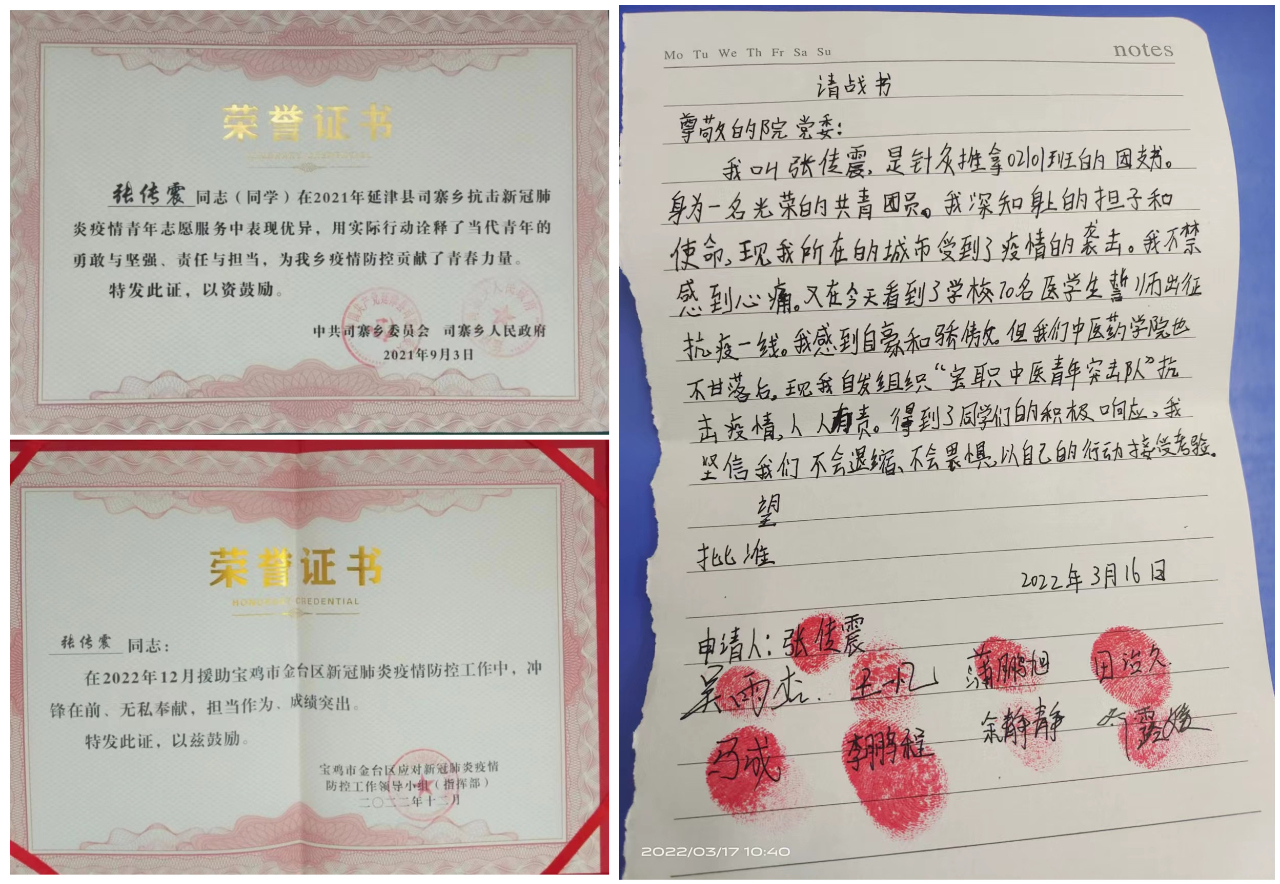 荣誉证书
张传震 同志（同学）在2021年延津县司寨乡抗击新冠肺
炎疫情青年志愿服务中表现优异，用实际行动诠释了当代青年的
勇敢与坚强、责任与担当，为我乡疫情防控贡献了青春力量。
特发此证，以资鼓励。
中共司寨乡委员会 司寨乡人民政府
2021年9月3日
荣誉证书
HONORARY CREDENTIAL
张传震 同志：
在2022年12月援助宝鸡市金台区新冠肺炎疫情防控工作中，冲
锋在前、无私奉献，担当作为、成绩突出。
特发此证，以兹鼓励。
宝鸡市金台区应对新冠肺炎疫情
防控工作领导小组（指挥部）
二〇二二年十二月
Mo Tu We Th Fr Sa Su
notes
请战书
尊敬的院党委：
我叫张传震，是针灸推拿02101班的团支书。
身为一名光荣的共青团员。我深知身上的担子和
使命，现我所在的城市受到了疫情的袭击。我不禁
感到心痛。又在今天看到了学校70名医学生誓师出征
抗疫一线。我感到自豪和骄傲。但我们中医药学院也
不甘落后。现我自发组织“宝职中医青年突击队”抗
击疫情，人人有责。得到了同学们的积极响应，我
坚信我们不会退缩、不会畏惧，以自己的行动接受考验。
望
批准
2022年3月16日
申请人：张传震
吴雨杰 王一帆 蒲鹏旭 田治久
马诚 李鹏程 余静静
2022/03/17 10:40